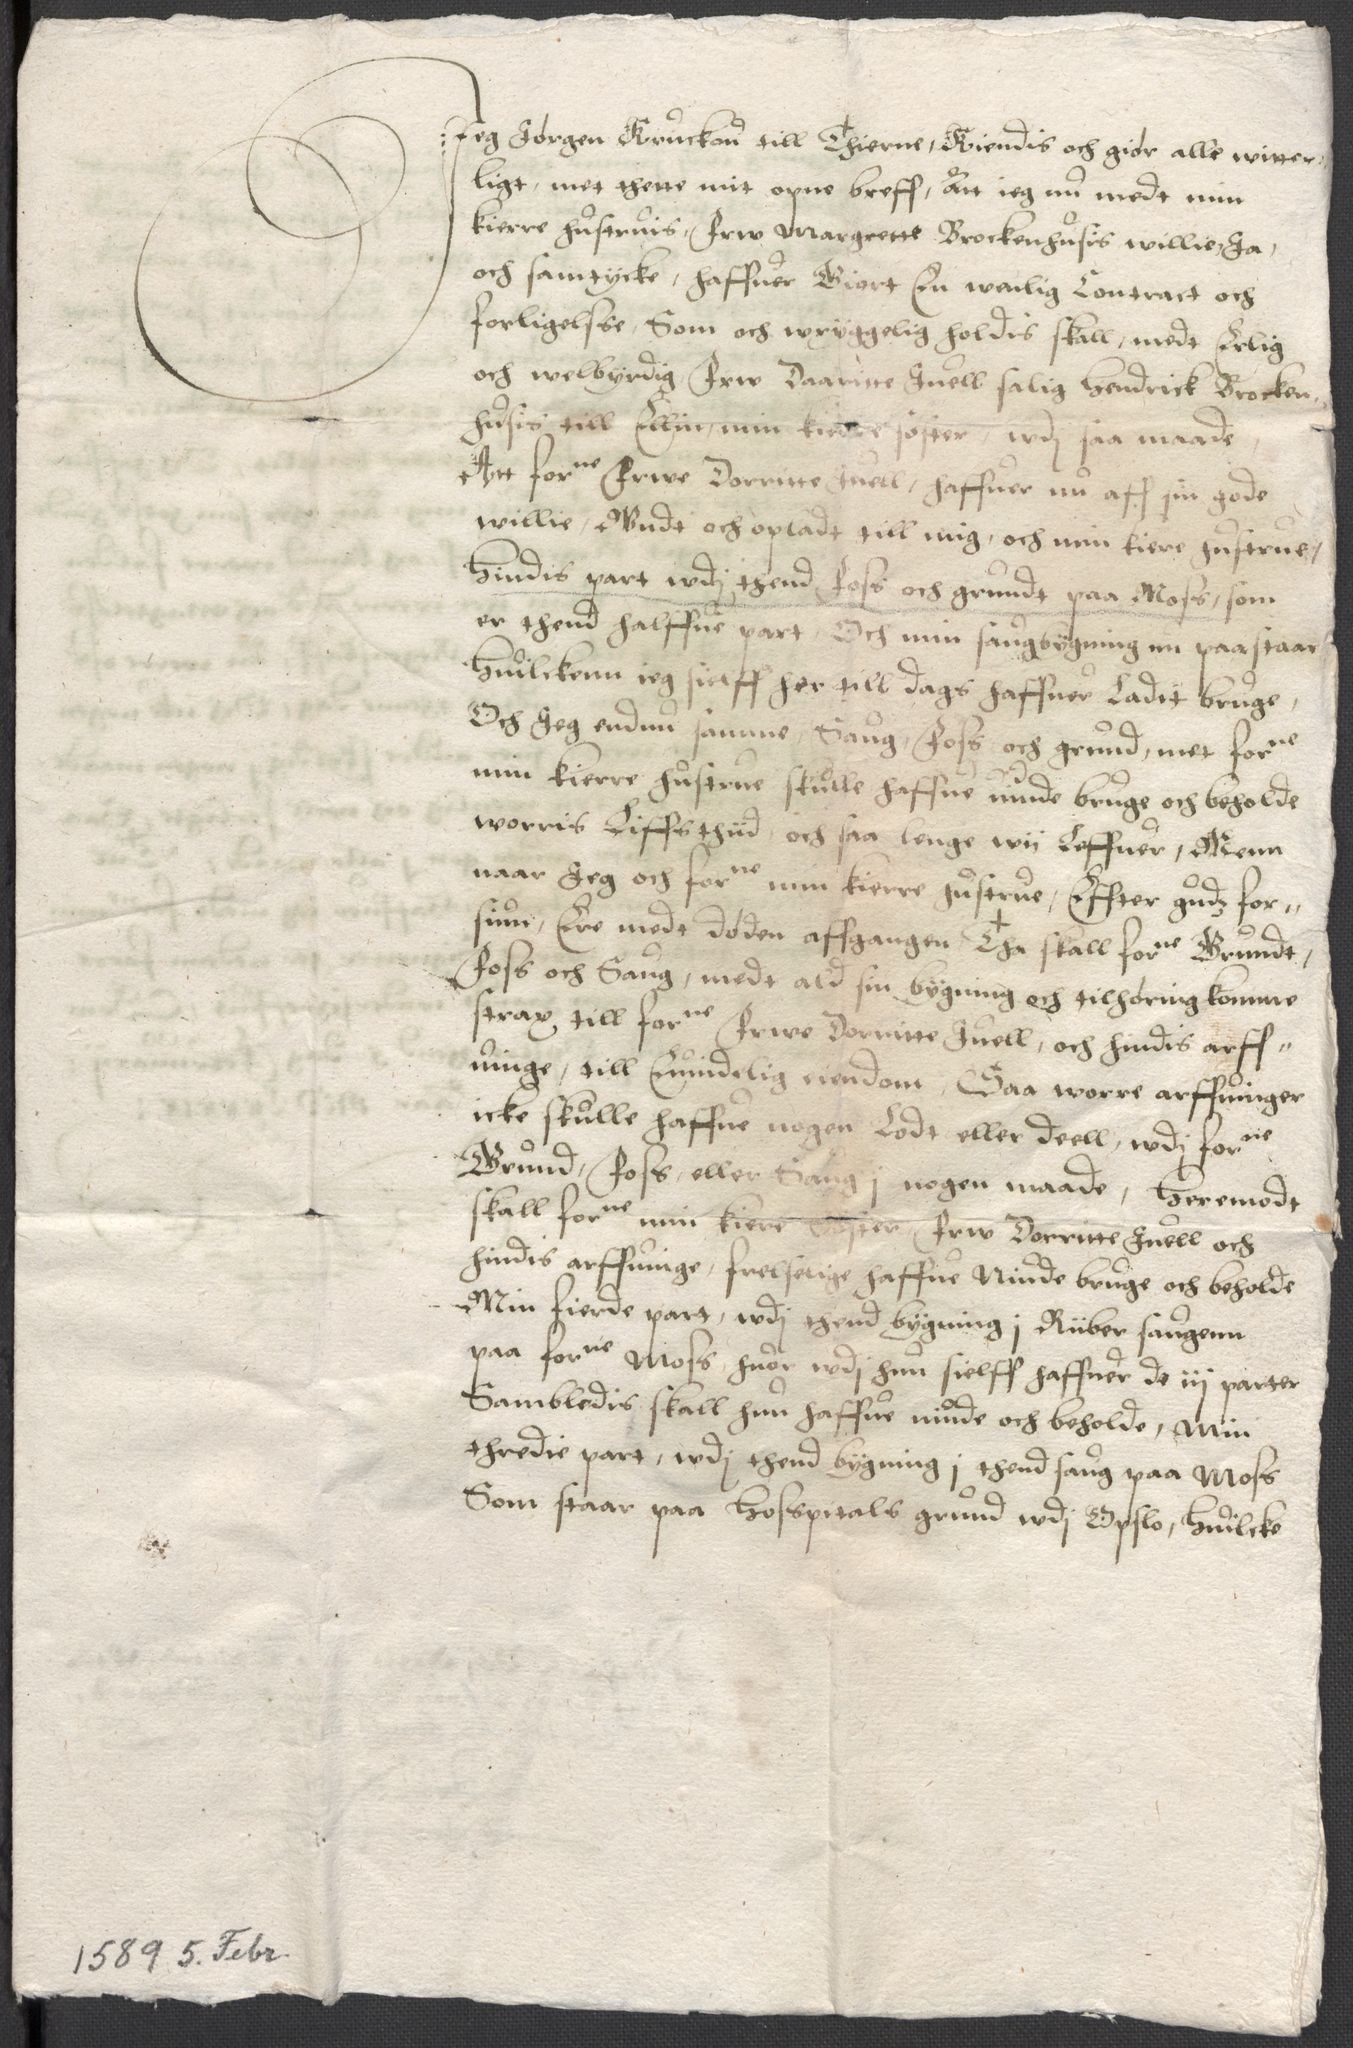 Jeg Jørgen Kruckou till Thierne, Kiendis och giør alle witter,
ligt, met thette mit opne breff, Att ieg nu medt min
kierre hustruis, Frw Margrette Brockenhusis willie, Ja,
och samtycke, haffuer Giort En wenlig Contract och
forligelsse, Som och wryggelig holdis skall, medt Erlig
och welbyrdig Frw Daaritte Juell salig Hendrick Brocken,,
husis till Ellin, min kierre søster, wdj saa maade,
Att forne Frwe Dorritte Juell, haffuer nu aff sin gode
willie, Undt och opladt till mig, och min kiere hustrue,
Hindis part wdj thend Foss och grundt paa Moss, som
er thend halffue part, Och min saugbygning nu paastaar
Huilckenn ieg sielff her till dags haffuer Ladit bruge,
Och Jeg endnu samme, Saug, Foss och grund, met forne
min kierre hustrue skulle haffue niude bruge och beholde
worris Liffs thiid, och saa lenge wij Leffuer, Menn
naar Jeg och forne min kierre hustrue, Effter gudz for,,
siun, Ere medt døden affgangen Tha skall forne Grundt,
Foss och Saug, medt ald sin bygning och tilhøring komme
strax till forne Frwe Dorritte Juell, och hindis arff,,
uinge, till Euindelig eiendom, Saa worre arffuinger
icke skulle haffue nogen Lodt eller deell, wdj forne
Grund, Foss, eller Saug j nogen maade, Heremodt
skall forne min kiere Søster, Frw Dorritte Juell och
hindis arffuinge, frelselige haffue Niude bruge och beholde
Min fierde part, wdj thend bygning j Rüber saugenn
paa forne Moss, huor wdj hun sielff haffuer de iij parter
Sambledis skall hun haffue niude och beholde, Min
thredie part, wdj thend bygning j thend saug paa Moss
Som staar paa Hosspitals grund wdj Opslo, Huilcke
1589 5. Febr.